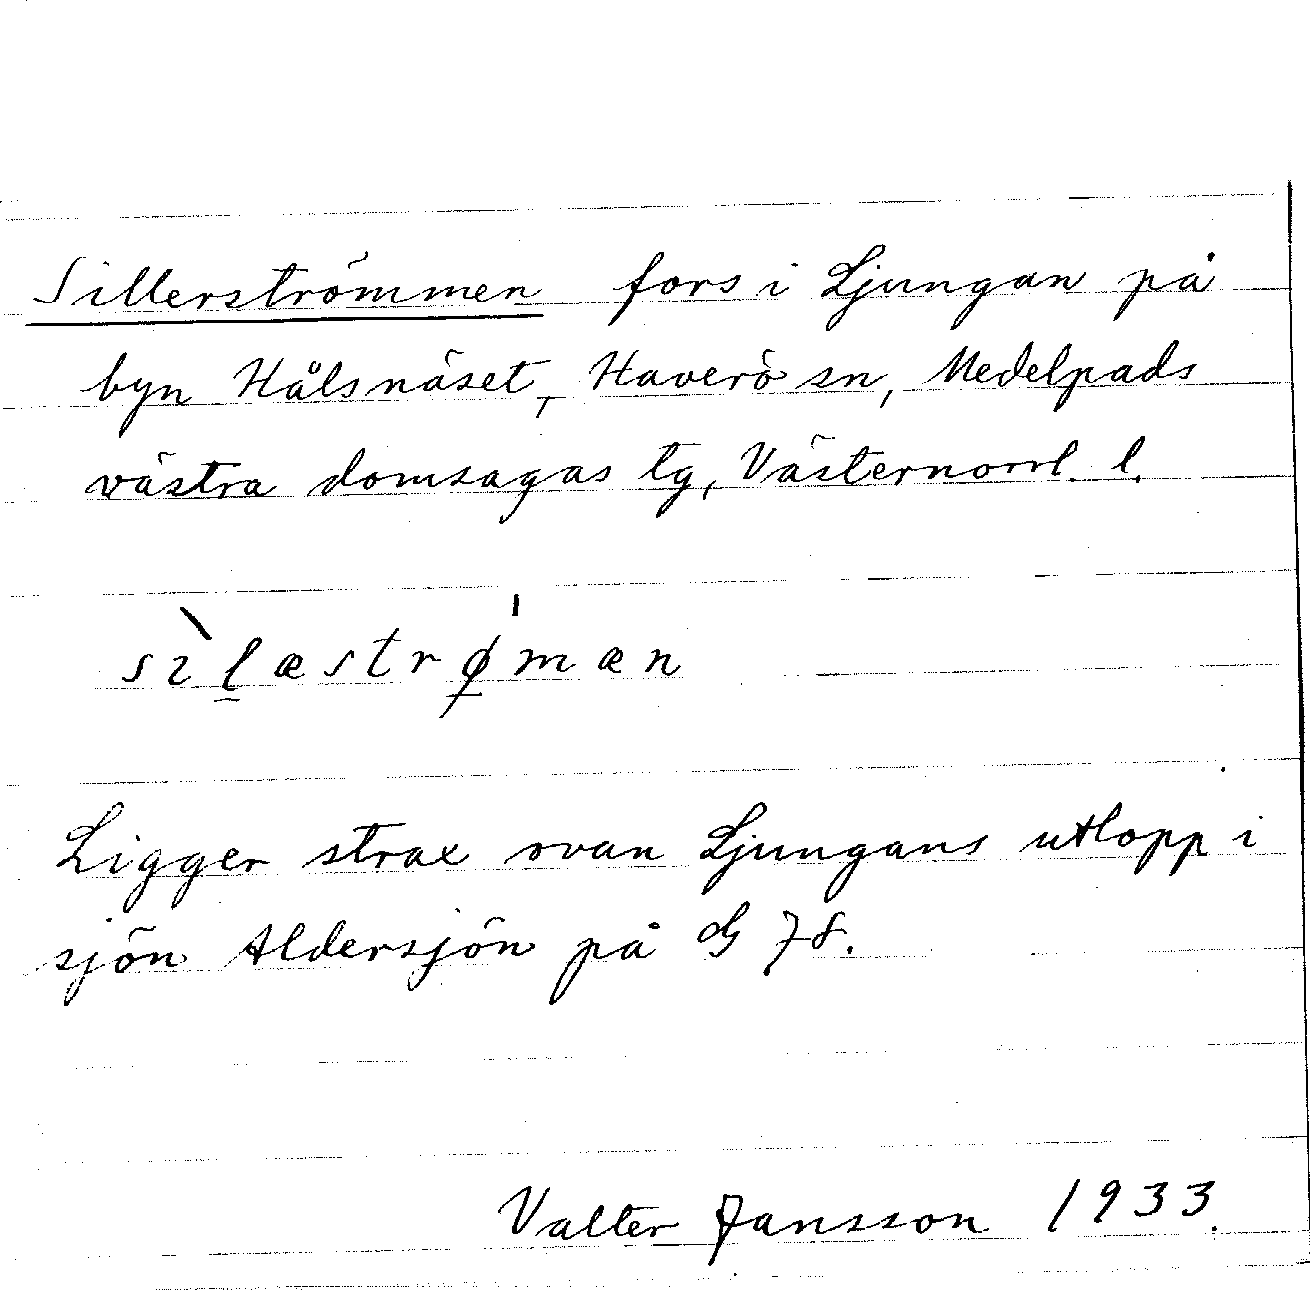 Sillerströmmen fors i Ljungan på
byn Hålsnäset, Haverö sn, Medelpads
västra domsagas tg, Västernorrl. l.
sìl̲æstrǿ̲mæn
Ligger strax ovan Ljungans utlopp i
sjön Aldersjön på G 78.
Valter Jansson 1933.